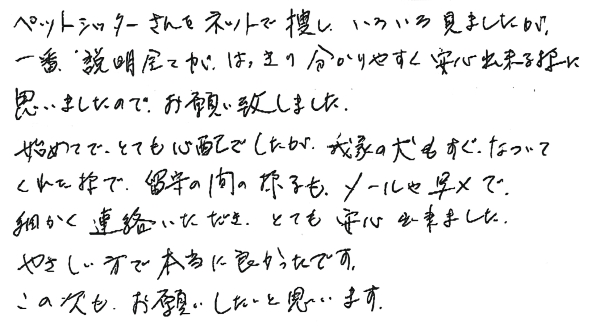 ペットシッターさんをネットで捜し、いろいろ見ましたが、
一番、説明全てが、はっきり分かりやすく安心出来る様に
思いましたので、お願い致しました。
始めてで、とても心配でしたが、我家の犬もすぐ、なついて
くれた様で、留守の間の様子も、メールや写メで、
細かく連絡いただき、とても安心出来ました。
やさしい方で本当に良かったです。
この次も、お願いしたいと思います。